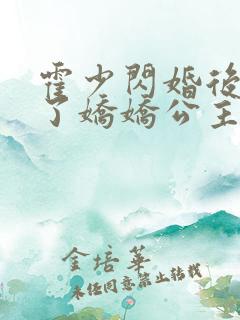 霍少閃婚後
了嬌嬌公主
金培華
未經同意禁止轉載